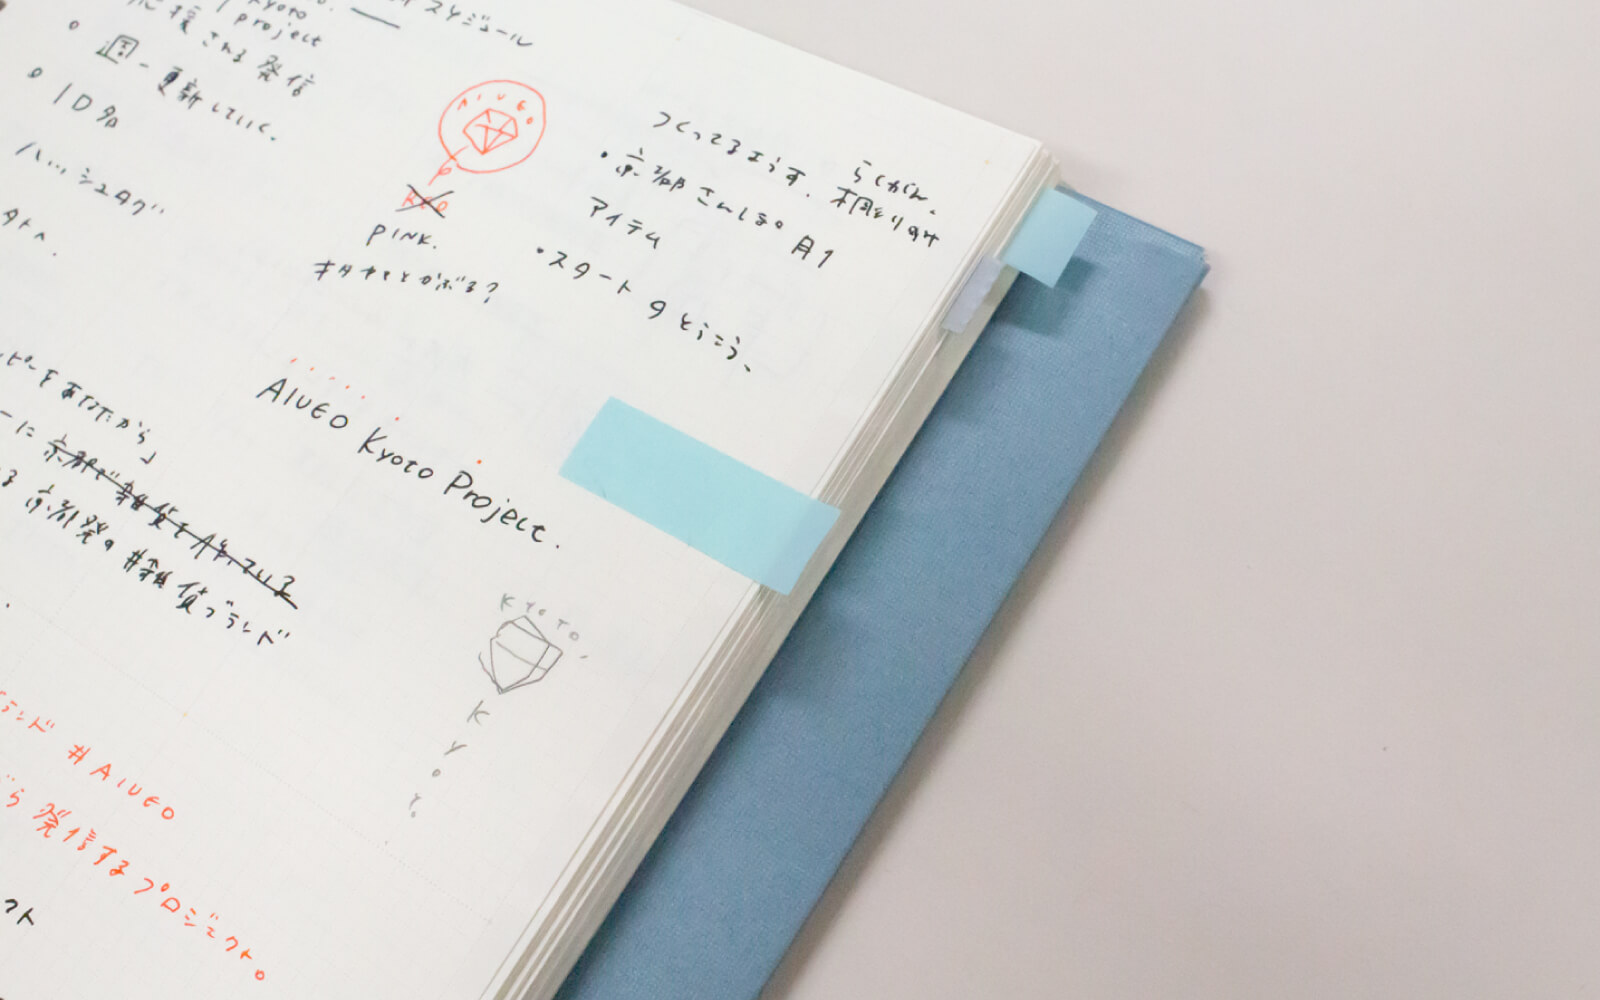 スケジュール
Kyoto
project
応援される発信
週一更新していく。
ID名
ハッシュタグ
AIUEO
RED
PINK.
キタキとかぶる?
つくってるようす. らくがん。
・京都さんしょ。月1
アイテム
・スタートのとうこう、
をあなたから」
AIUEO Kyoto Project.
に京都で雑貨を作っている
京都発の#雑貨ブランド
KYOTO,
KYOT.
#AIUEO
発信するプロジェクト。
クト